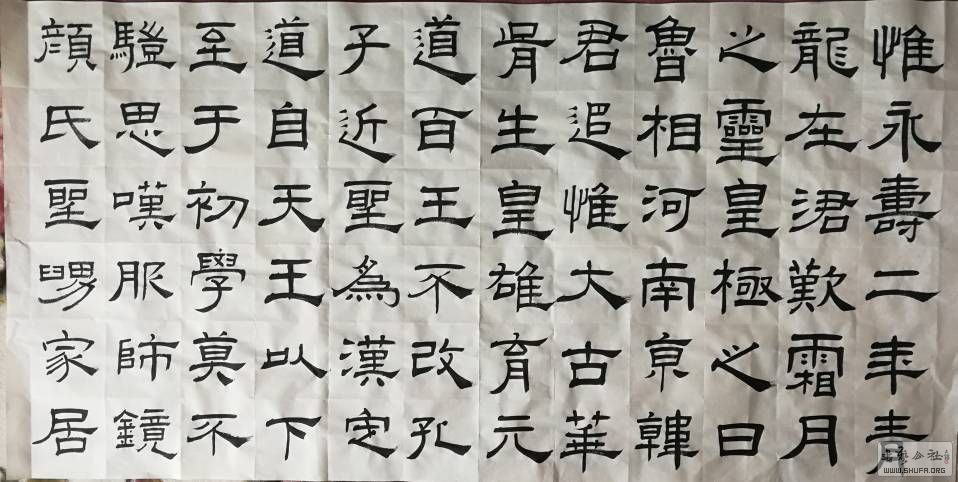 惟永壽二年青
龍在涒歎霜月
之靈皇極之日
魯相河南亰韓
君追惟大古華
胥生皇雄育元
道百王不改孔
子近聖為漢定
道自天王以下
至于初學莫不
思嘆服師鏡
顏氏聖舅家居
書藝公社
WWW.SHUFA.ORG